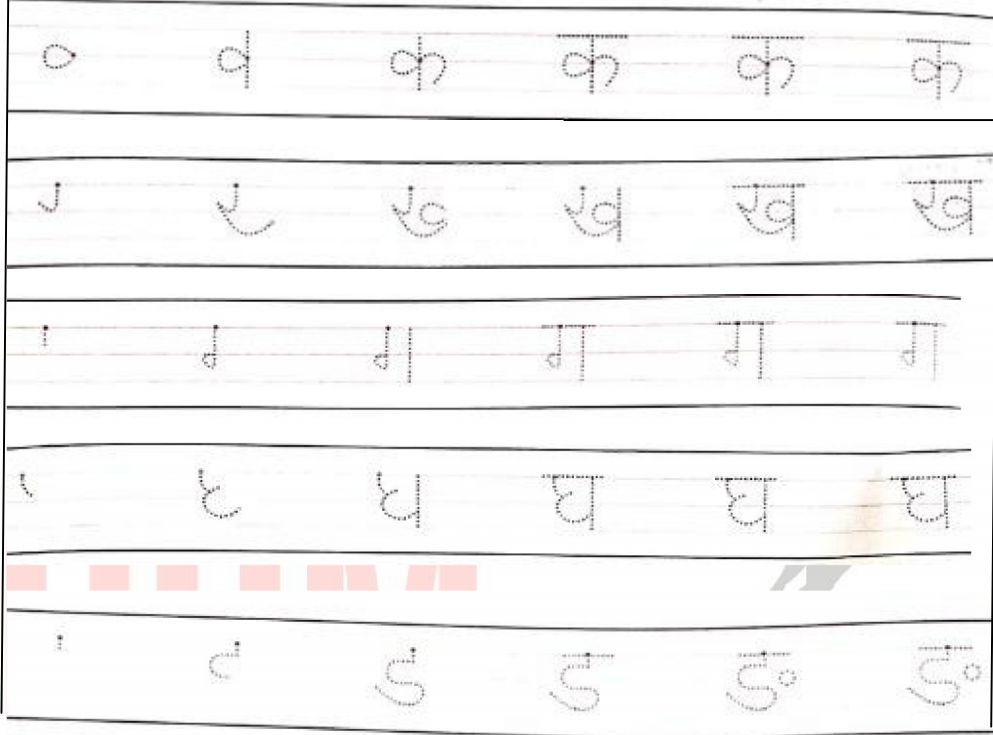 क क क
ख ख
ग ग ग
घ घ घ
ड ङ ङ